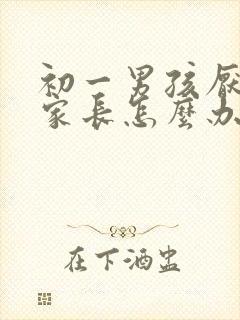 初一男孩厌
家长怎麼办
在下酒蛊